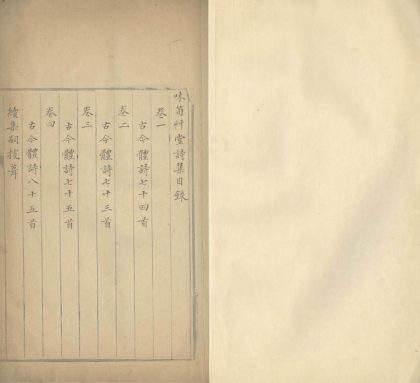 味筍艸堂詩集目錄
卷一
古今體詩七十四首
卷二
古今體詩七十三首
卷三
古今體詩七十五首
卷四
古今體詩八十五首
續集嗣授葊